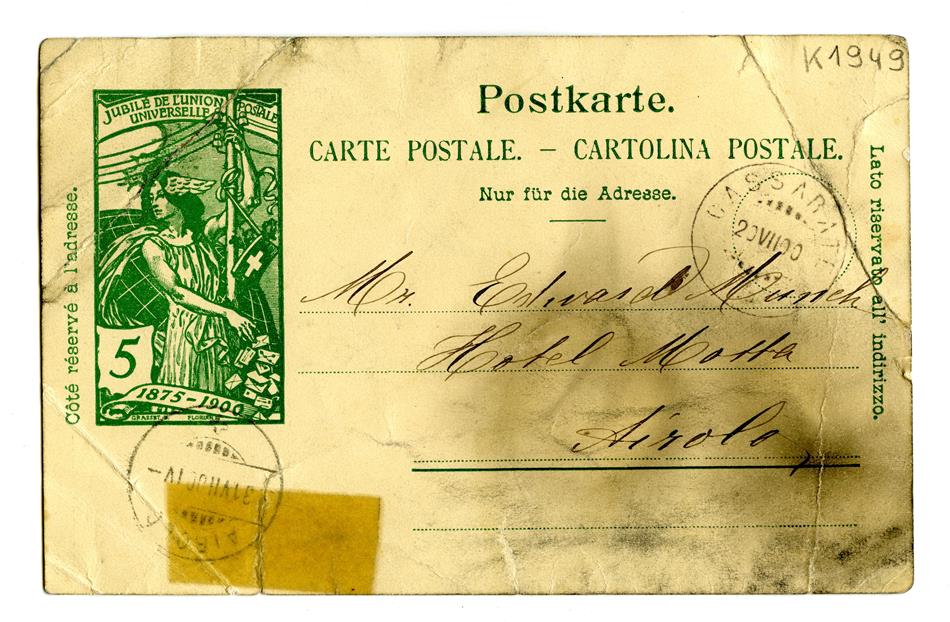 K1949
JUBILÉ DE L'UNION POSTALE
UNIVERSELLE
Postkarte.
CARTE POSTALE. – CARTOLINA POSTALE.
Nur für die Adresse.
Côté réservé à l'adresse.
Lato riservato all' indirizzo.
CASSARATE
20VII00
Mr. Edward Munch
Hotel Motta
Airolo
5
1875-1900
GRASSET
31VII00 IV–
AIRO